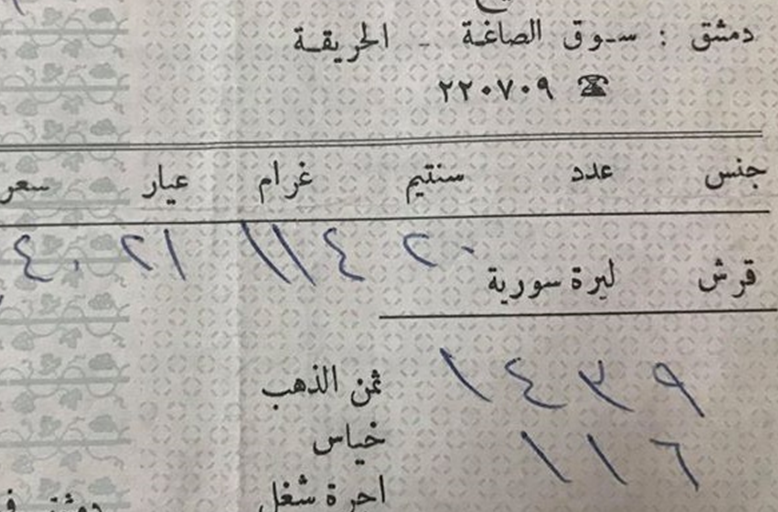 دمشق : سوق الصاغة - الحريقة
☎ ٢٢٠٧٠٩
جنس عدد سنتيم غرام عيار سعر
٢٠ ١١٤ ٢١ ٤٠
قرش ليرة سورية
١٤٣٩ ثمن الذهب
١١٦ خياس
اجرة شغل